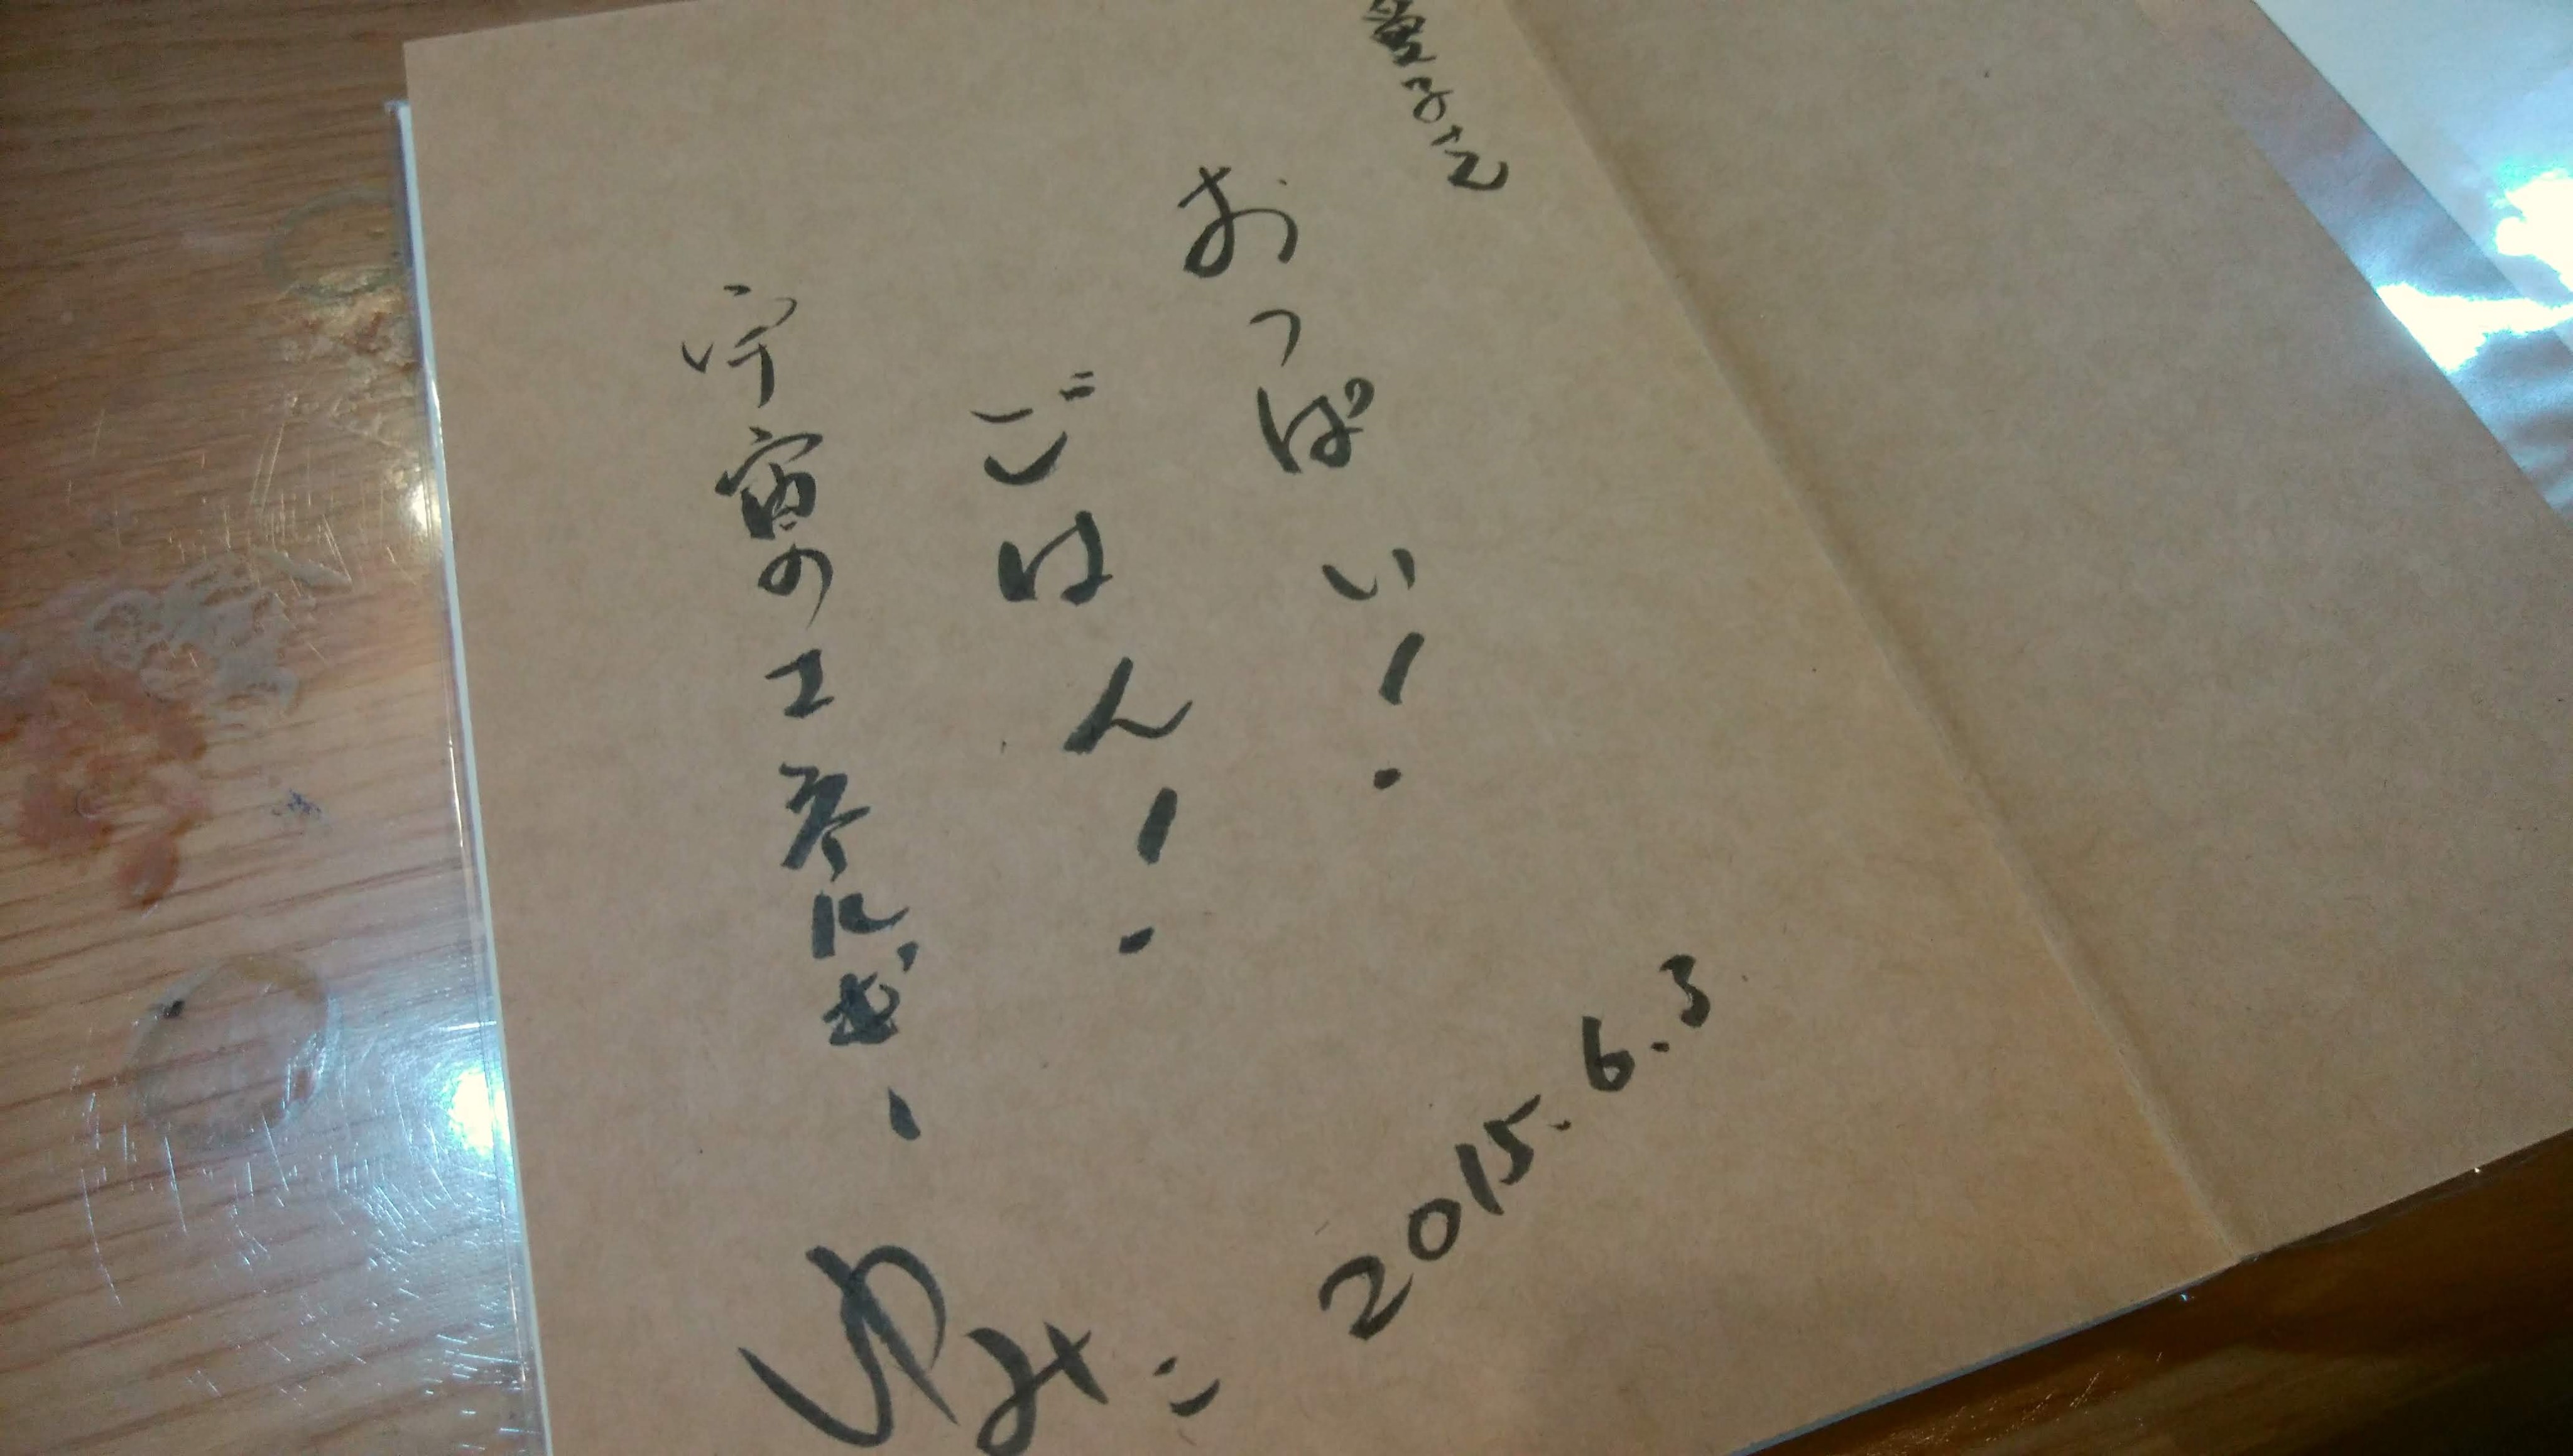 愛子さん
おっぱい!
ごはん!
宇宙のエネルギー
ゆみこ
2015.6.3